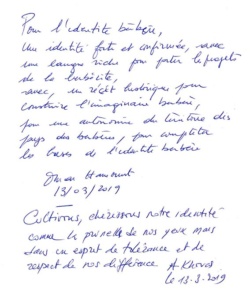 Pour l'identité berbère,
Une identité forte et confirmée, avec
une langue riche pour porter le projet
de la berbérité,
avec, un récit historique pour
construire l'imaginaire berbère,
pour une autonomie de territoire des
pays des berbères, pour compléter
les bases de l'identité berbère
13/03/2019
Cultivons, chérissons notre identité
comme la prunelle de nos yeux mais
dans un esprit de tolérance et de
respect de nos différence A. Khoras
le 13-3-2019